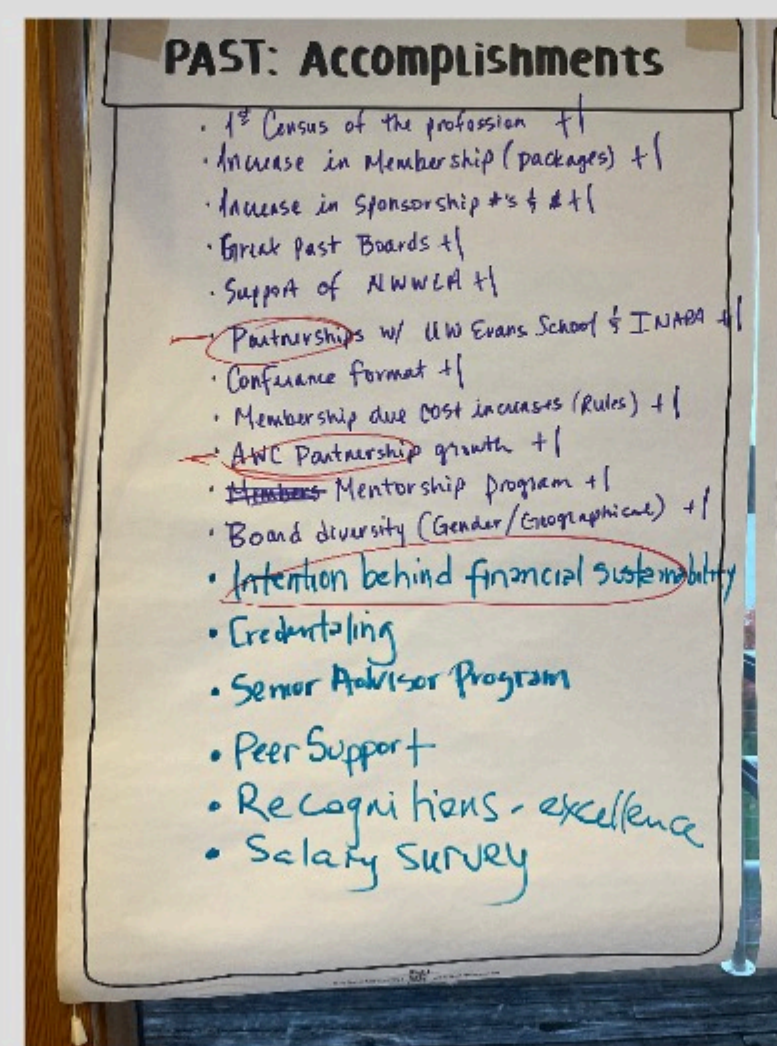 PAST: Accomplishments
· 1st Census of the profossion +1
· Increase in Membership (packages) +1
· Increase in Sponsorship #'s & $ +1
· Great Past Boards +1
· Support of NWWLA +1
· Partnerships w/ UW Evans School & INAPA +1
· Conferance format +1
· Membership due cost increases (Rules) +1
· AWC Partnership growth +1
· Members Mentorship Program +1
· Board diversity (Gender/Geographical) +1
· Intention behind financial sustainability
· Credentialing
· Senior Advisor Program
· Peer Support
· Recognitions - excellence
· Salary Survey